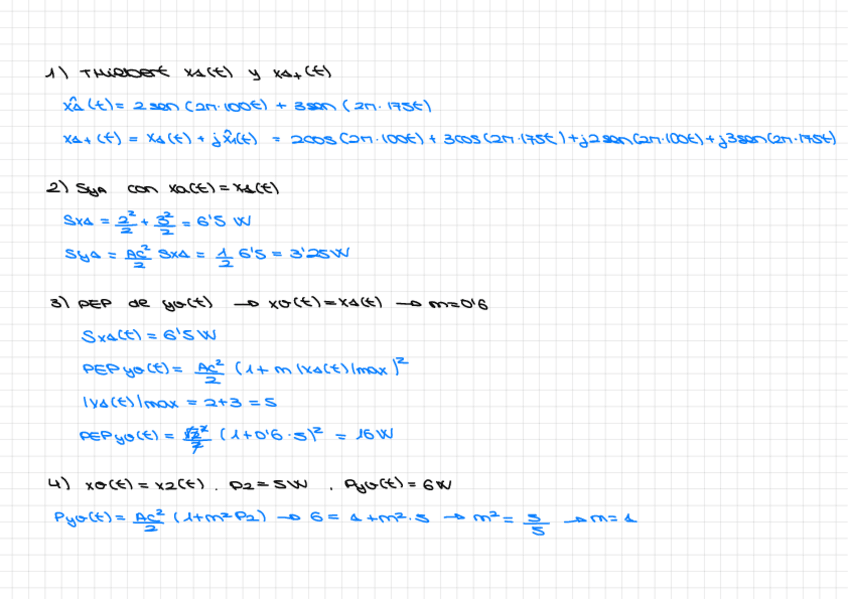 1) THilbert x1(t) y x1+(t)
x̂1(t) = 2sen(2π·100t) + 3sen(2π·175t)
x1+(t) = x1(t) + jx̂1(t) = 2cos(2π·100t) + 3cos(2π·175t) + j2sen(2π·100t) + j3sen(2π·175t)
2) SyA con xa(t) = x1(t)
Sx1 = 2²/2 + 3²/2 = 6'5 W
Sy1 = Ac²/2 Sx1 = 1/2 6'5 = 3'25W
3) PEP de y0(t) → x0(t) = x1(t) → m=0'6
Sx1(t) = 6'5 W
PEPy0(t) = Ac²/2 (1 + m |x1(t)|max)²
|x1(t)|max = 2+3 = 5
PEPy0(t) = √2²/2 (1+0'6·5)² = 16 W
4) x0(t) = x2(t). P2 = 5W. Py0(t) = 6W
Py0(t) = Ac²/2 (1+m²P2) → 6 = 1+m²·5 → m² = 5/5 → m = 1